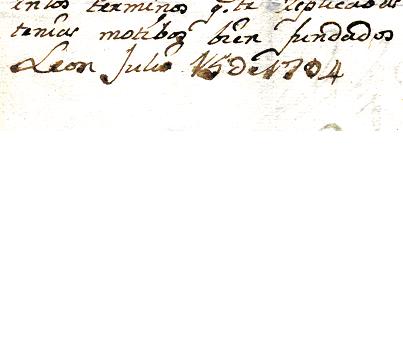 en los terminos q.e te explicabas
tenias motibos bien fundados
Leon Julio 15 de 1794